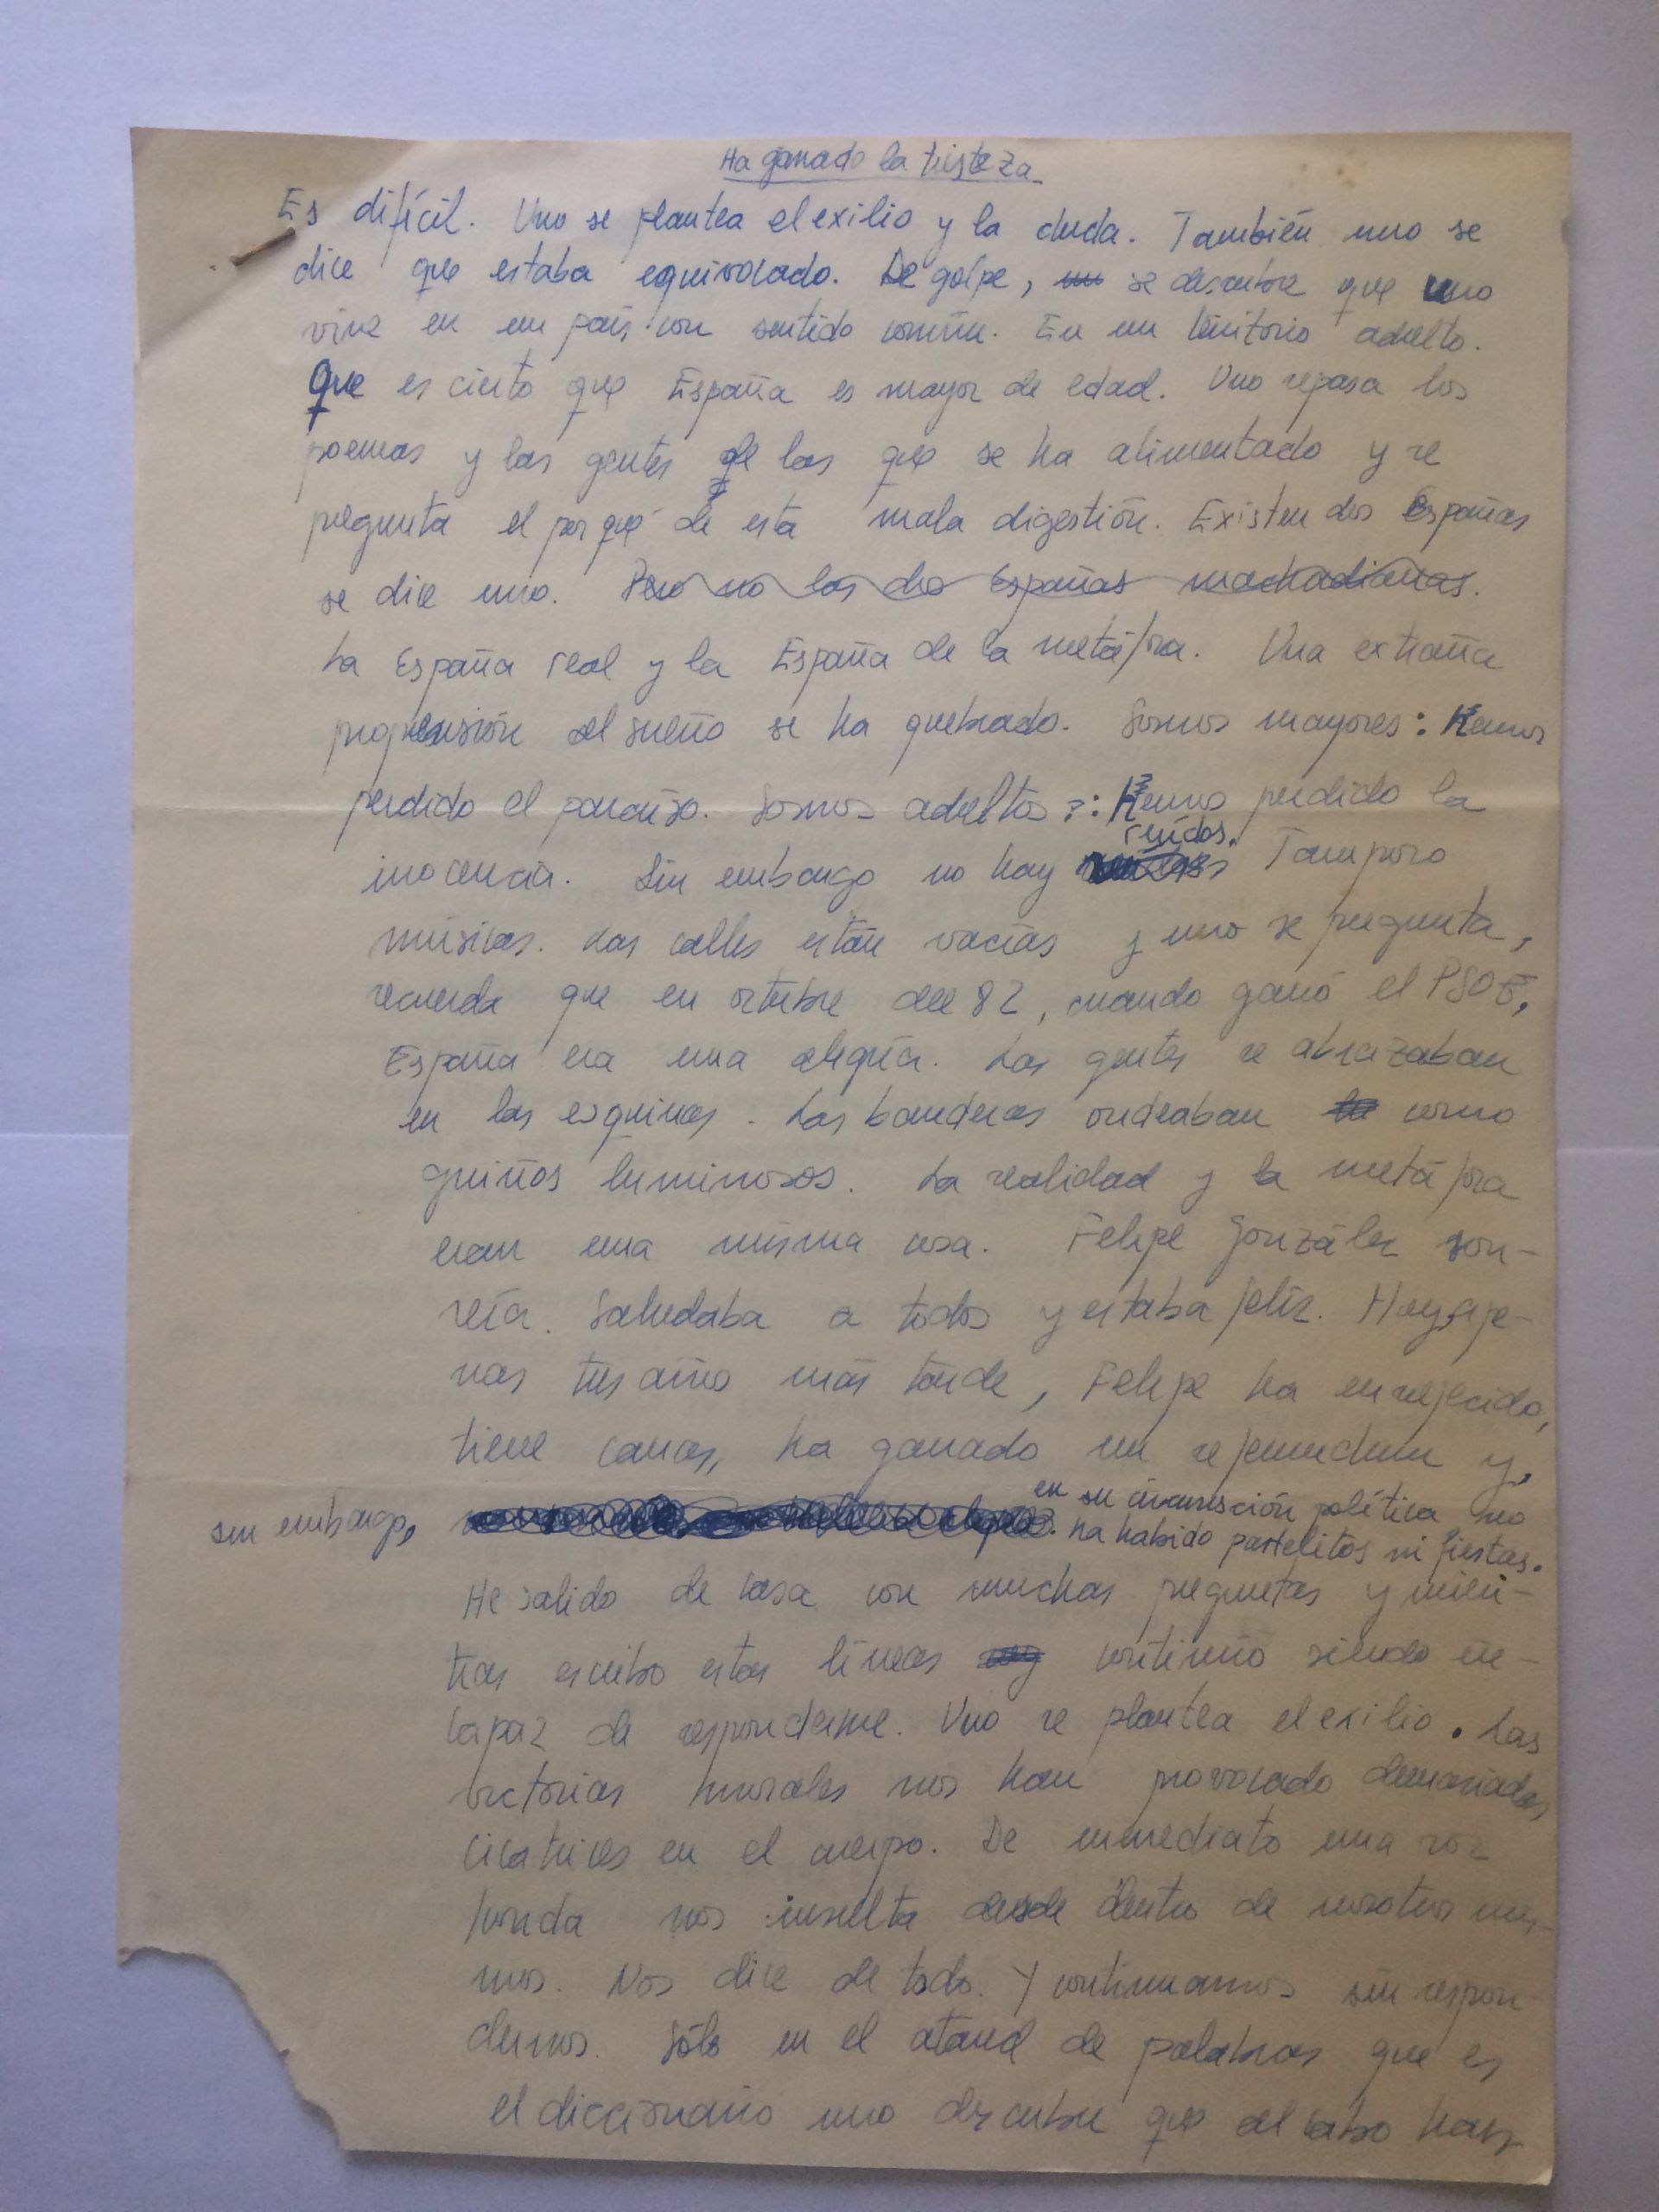 Ha ganado la tristeza
Es difícil. Uno se plantea el exilio y la duda. También uno se
dice que estaba equivocado. De golpe, se descubre que uno
vive en un país con sentido común. En un territorio adulto.
Que es cierto que España es mayor de edad. Uno repasa los
poemas y las gentes de las que se ha alimentado y se
pregunta el por qué de esta mala digestión. Existen dos Españas
se dice uno. Pero no las dos Españas machadianas.
La España real y la España de la metáfora. Una extraña
propensión al sueño se ha quebrado. Somos mayores: Hemos
perdido el paraíso. Somos adultos: Hemos perdido la
inocencia. Sin embargo no hay ruidos. Tampoco
músicas. Las calles están vacías y uno se pregunta,
recuerda que en octubre del 82, cuando ganó el PSOE,
España era una alegría. Las gentes se abrazaban
en las esquinas. Las banderas ondeaban como
guiños luminosos. La realidad y la metáfora
eran una misma cosa. Felipe González son-
reía. Saludaba a todos y estaba feliz. Hoy, ape-
nas tres años más tarde, Felipe ha envejecido,
tiene canas, ha ganado un referendum y,
sin embargo, en su circunscripción política no
ha habido pastelitos ni fiestas.
He salido de casa con muchas preguntas y mien-
tras escribo estas líneas continúo siendo in-
capaz de responderme. Uno se plantea el exilio. Las
victorias morales nos han provocado demasiadas
cicatrices en el cuerpo. De inmediato una voz
honda nos insulta desde dentro de nosotros mis-
mos. Nos dice de todo. Y continuamos sin respon-
dernos. Sólo en el ataud de palabras que es
el diccionario uno descubre que al cabo